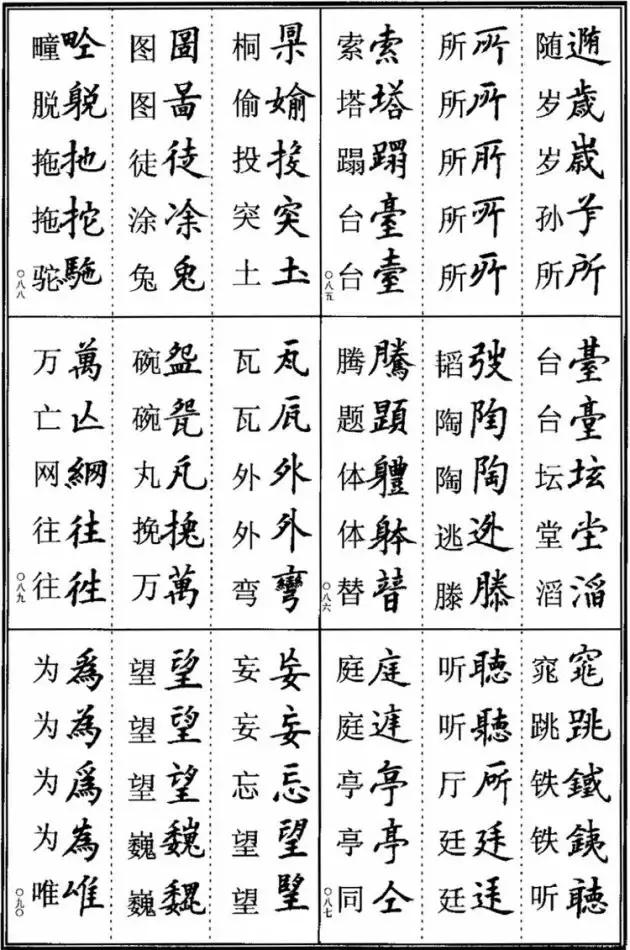 随 岁歲 岁歳 孙 所所
所所 所所 所所 所所 所所
索索 塔塔 蹋蹋 台臺 台臺
〇八五
台臺 台臺 坛坛 堂坣 滔滔
韬弢 陶陶 陶陶 逃迯 滕滕
腾騰 题題 体軆 体躰 替朁
〇八六
窕窕 跳跳 铁鐵 铁銕 听聽
听聽 听聽 厅所 廷廷 廷
庭庭 庭 亭亭 亭亭 同仝
〇八七
桐 偷媮 投投 突突 土圡
图圖 图啚 徒徒 涂凃 兔兔
疃畍 脱躮 拖扡 拖拕 驼駞
〇八八
瓦瓦 瓦瓦 外外 外外 弯彎
碗盌 碗瓮 丸凡 挽挽 万萬
万萬 亡亾 网網 往往 往徃
〇八九
妄妄 妄妄 忘忘 望望 望朢
望望 望望 望望 巍巍 巍魏
为爲 为為 为爲 为為 唯唯
〇九〇